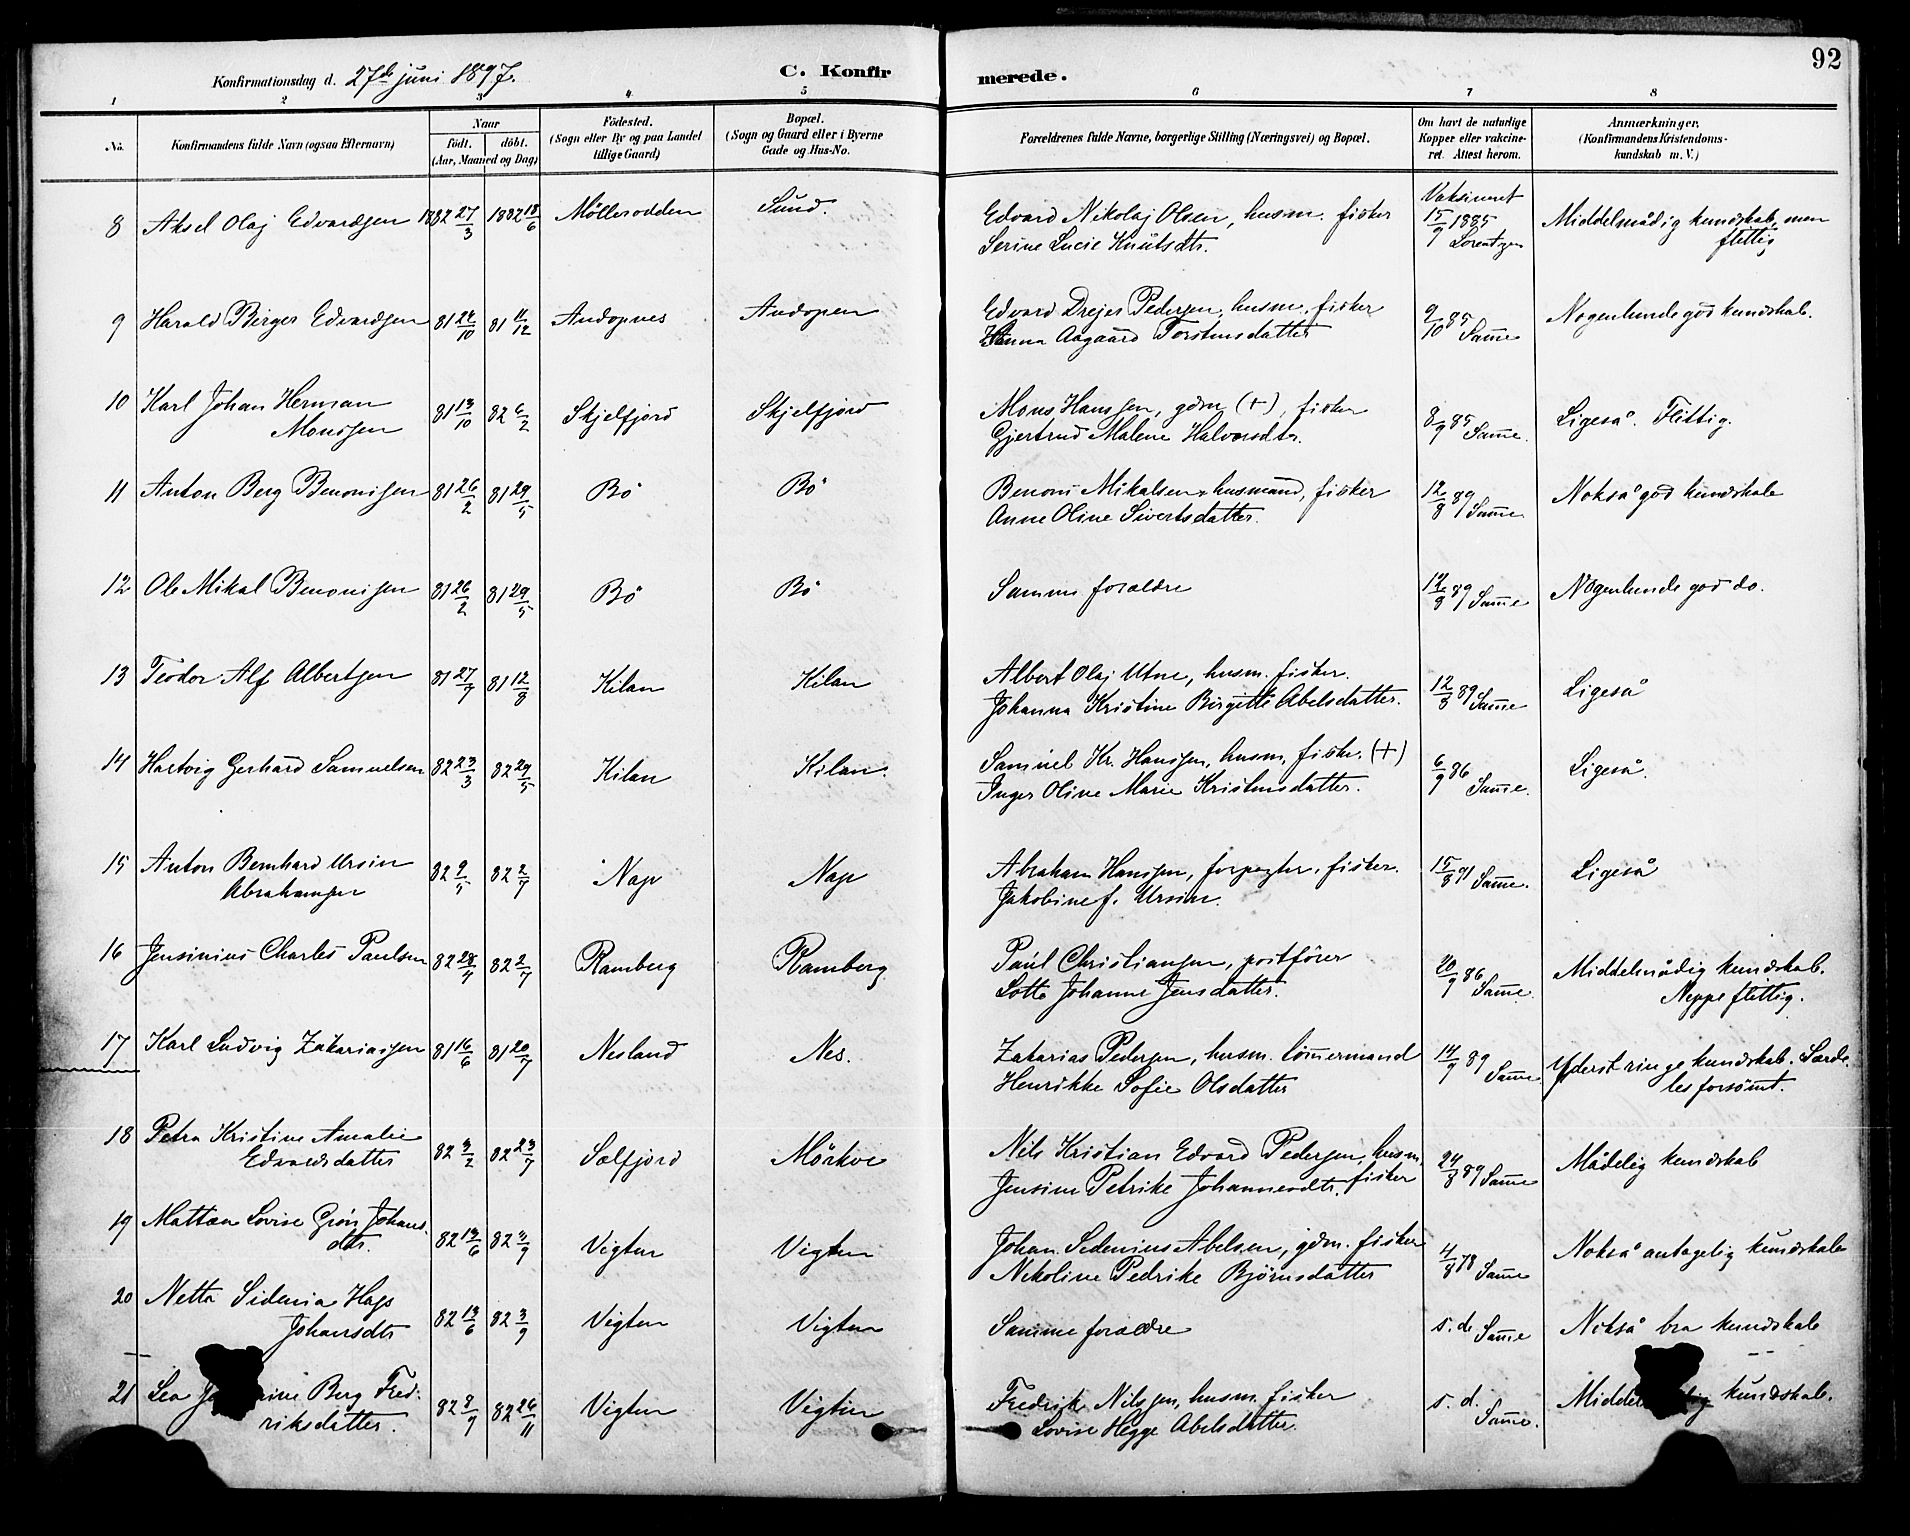 92
Konfirmationsdag d. 27de juni 1897.
C. Konfirmerede.
1 2 3 4 5 6 7 8
No.
Konfirmandens fulde Navn (ogsaa Efternavn)
Naar
födt. döbt.
(Aar, Maaned og Dag)
Födested.
(Sogn eller By og paa Landet
tillige Gaard)
Bopæl.
(Sogn og Gaard eller i Byerne
Gade og Hus-No.
Forældrenes fulde Navne, borgerlige Stilling (Næringsvei) og Bopæl.
Om havt de naturlige
Kopper eller vakcine-
ret. Attest herom.
Anmærkninger.
(Konfirmandens Kristendoms-
kundskab m. V.)
8 Aksel Olaj Edvardsen 1882 27/3 1882 18/6 Möllerodden Sund. Edvard Nikolaj Olsen, husm. fisker
Serine Lucie Knutsdtr.
Vaksineret
15/9 1885
Lorentzen
Middelmådig kundskab, men
flittig
9 Harald Birger Edvardsen 81 24/10 81 11/12 Andopnes Andopen Edvard Drejer Pedersen, husm. fisker
Hanna Aagaard Torstensdatter
9/10 85 Samme
Nogenlunde god kundskab.
10 Karl Johan Herman
Monssen
81 13/10 82 6/2 Skjelfjord Skjelfjord Mons Hanssen, gdm. (+), fisker
Gjertrud Malene Halvorsdtr.
8/9 85 Samme.
Ligeså. Flittig.
11 Anton Berg Benonisen 81 26/2 81 29/5 Bö Bö Benoni Mikalsen husmand, fisker
Anne Oline Sivertsdatter.
12/8 89 Samme
Nokså god kundskab
12 Ole Mikal Benonisen 81 26/2 81 29/5 Bö Bö Samme forældre 12/8 89 Samme Nogenlunde god do.
13 Teodor Alf Albertsen 81 27/7 81 12/8 Kilan Kilan Albert Olaj Utne, husm. fisker.
Johanna Kristine Birgitte Abelsdatter.
12/8 89 Samme
Ligeså
14 Hartvig Gerhard Samuelsen 82 23/3 82 29/5 Kilan Kilan. Samuel Kr. Hanssen, husm. fisker. (+)
Inger Oline Marie Kristensdatter.
6/9 86 Samme.
Ligeså.
15 Anton Bernhard Ursin
Abrahamsen
82 9/5 82 2/7 Nap Nap Abraham Hanssen, forpagter, fisker.
Jakobine f. Ursin.
15/8 91 Samme.
Ligeså
16 Jensinius Charles Paulsen 82 28/4 82 2/7 Ramberg Ramberg Paul Christiansen, postförer
Lotte Johanne Jensdatter.
20/9 86 Samme
Middelmådig kundskab.
Neppe flittig.
17 Karl Ludvig Zakariassen 81 16/6 81 20/7 Nesland Nes. Zakarias Pedersen, husm. tömmermand
Henrikke Sofie Olsdatter
14/9 89 Samme
Yderst ringe kundskab. Særde-
les forsömt.
18 Petra Kristine Amalie
Edvardsdatter
82 3/2 82 23/7 Solfjord Mörkve Nils Kristian Edvard Pedersen, husm.
Jensine Petrike Johannesdtr. fisker
24/8 89 Samme
Mådelig kundskab
19 Mattæa Lovise Grön Johans
dtr.
82 13/6 82 3/9 Vigten Vigten Johan Sedenius Abelsen, gdm. fisker
Nikoline Pedrike Björnsdatter
4/8 98 Samme
Nokså antagelig kundskab
20 Netta Sidenia Hags
Johansdtr
82 13/6 82 3/9 Vigten Vigten Samme forældre s. d. Samme Nokså bra kundskab
21 Lea Berg Fred-
riksdatter.
82 8/9 82 26/11 Vigten Vigten Fredrik Nilssen, husm. fisker
Lovise Hegge Abelsdatter.
s. d. Samme.
kundskab.